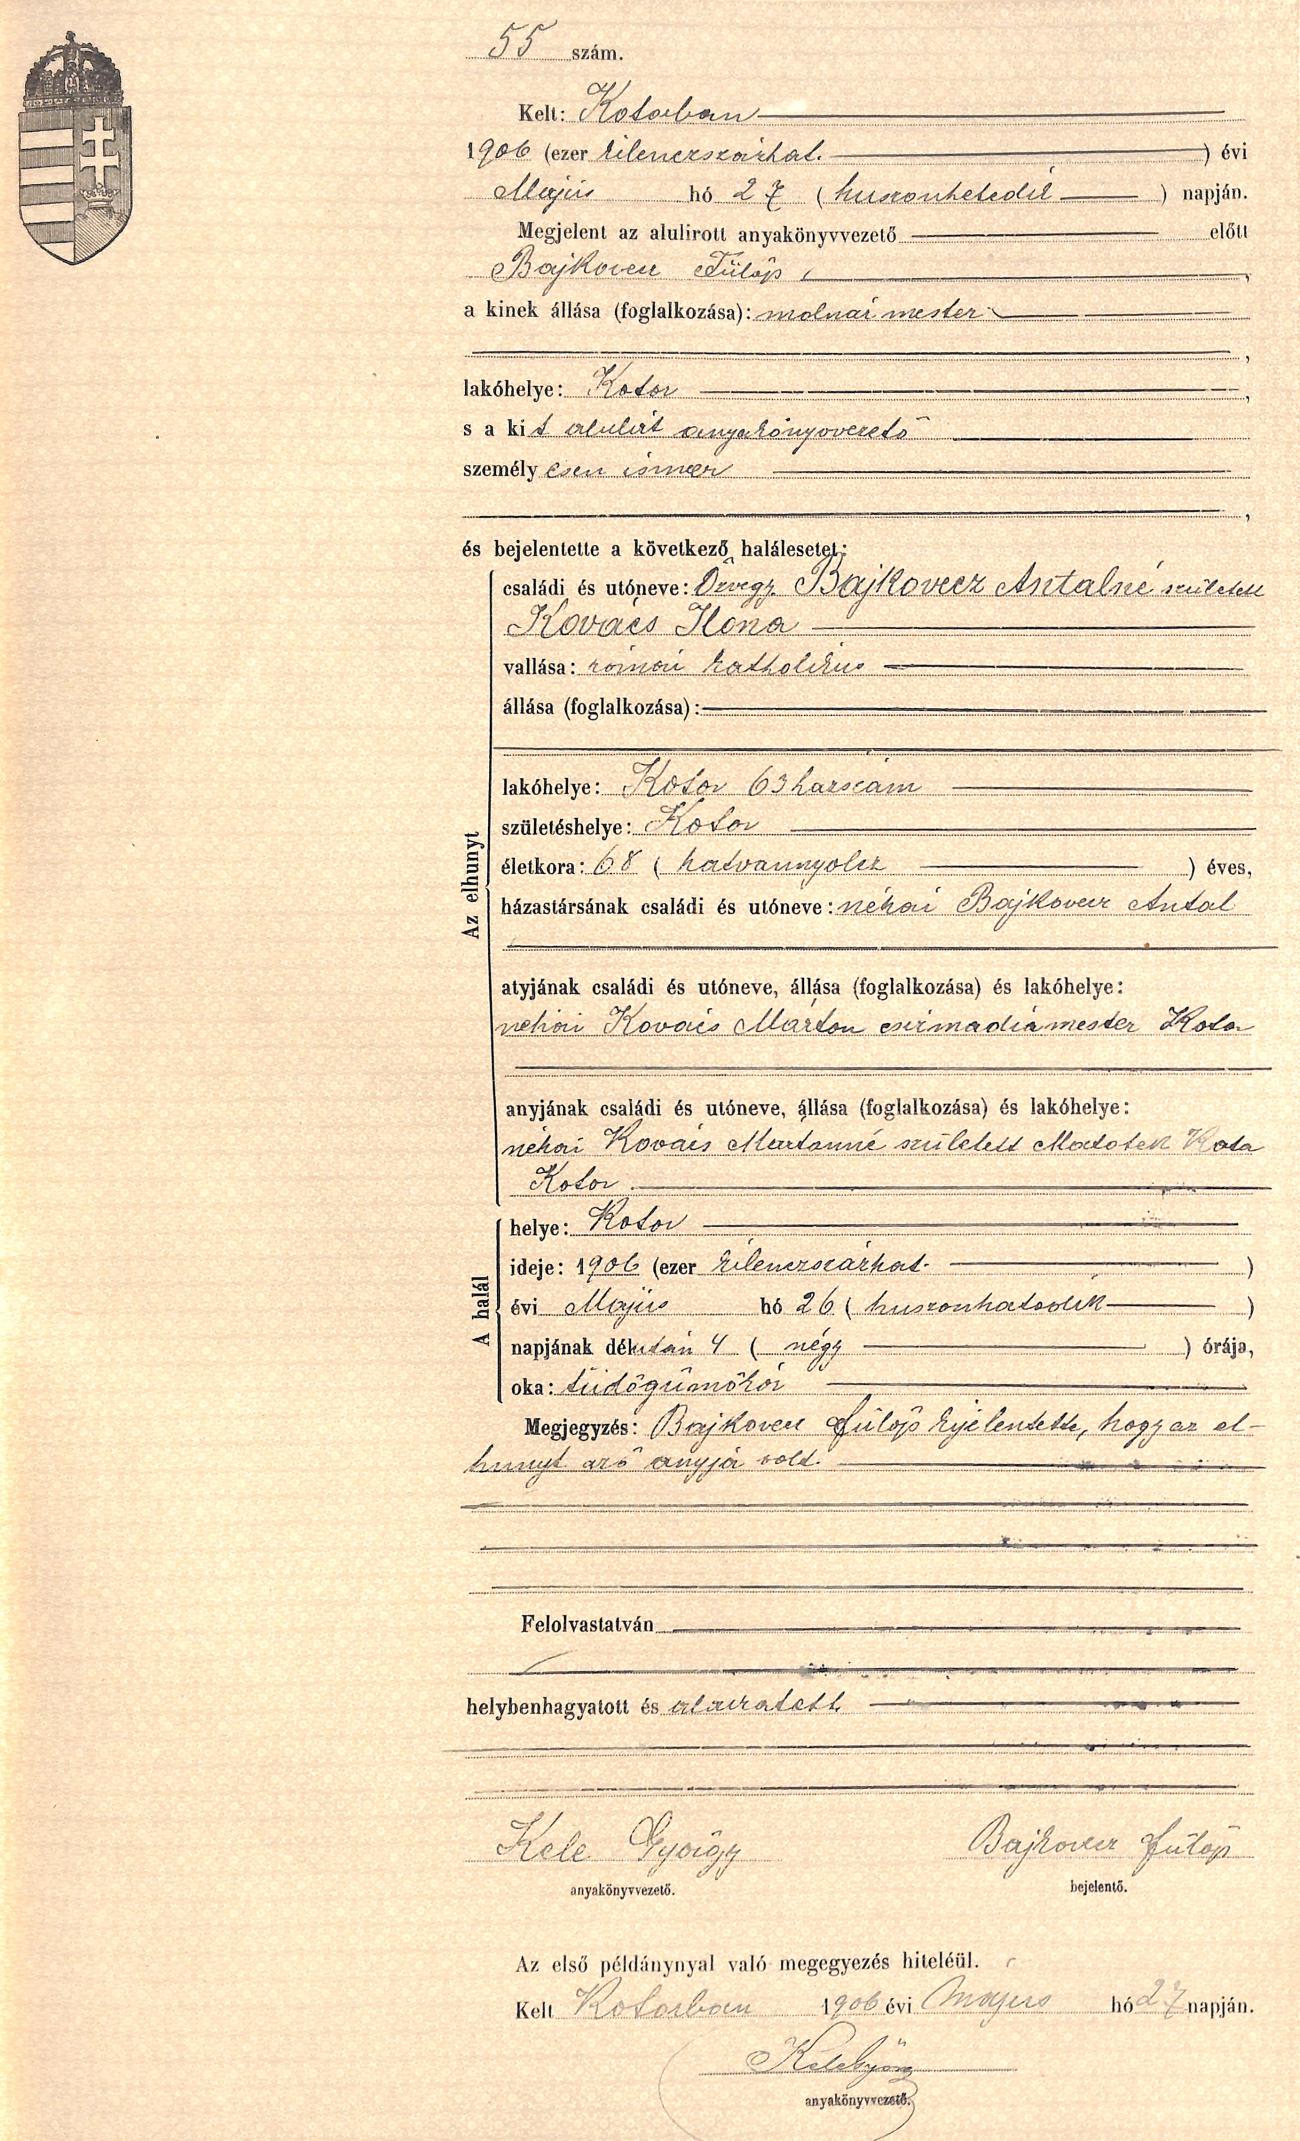 55 szám.
Kelt: Kotorban
1906 (ezer kilenczszázhat. ) évi
Május hó 27 (huszonhetedik ) napján.
Megjelent az alulirott anyakönyvvezető előtt
Bajkovecz Fülöp,
a kinek állása (foglalkozása): molnár mester
,
lakóhelye: Kotor ,
s a kit alulírt anyakönyvvezető
személyesen ismer
,
és bejelentette a következő halálesetet:
Az elhunyt
családi és utóneve: Özvegy Bajkovecz Antalné született
Kovács Ilona
vallása: római katholikus
állása (foglalkozása):
lakóhelye: Kotor 63 házszám
születéshelye: Kotor
életkora: 68 (hatvannyolcz ) éves,
házastársának családi és utóneve: néhai Bajkovecz Antal
atyjának családi és utóneve, állása (foglalkozása) és lakóhelye:
néhai Kovács Márton csizmadia mester Kotor
anyjának családi és utóneve, állása (foglalkozása) és lakóhelye:
néhai Kovács Mártonné született Matotek Kata
Kotor
A halál
helye: Kotor
ideje: 1906 (ezer kilenczszázhat. )
évi Május hó 26 (huszonhatodik )
napjának délután 4 (négy ) órája,
oka: tüdőgümőkór
Megjegyzés: Bajkovecz Fülöp kijelentette, hogy az el-
hunyt az ő anyja volt.
Felolvastatván
helybenhagyatott és aláiratott
Kele György Bajkovecz Fülöp
anyakönyvvezető. bejelentő.
Az első példánynyal való megegyezés hiteléül.
Kelt Kotorban 1906 évi Május hó 27 napján.
Kele György
anyakönyvvezető.